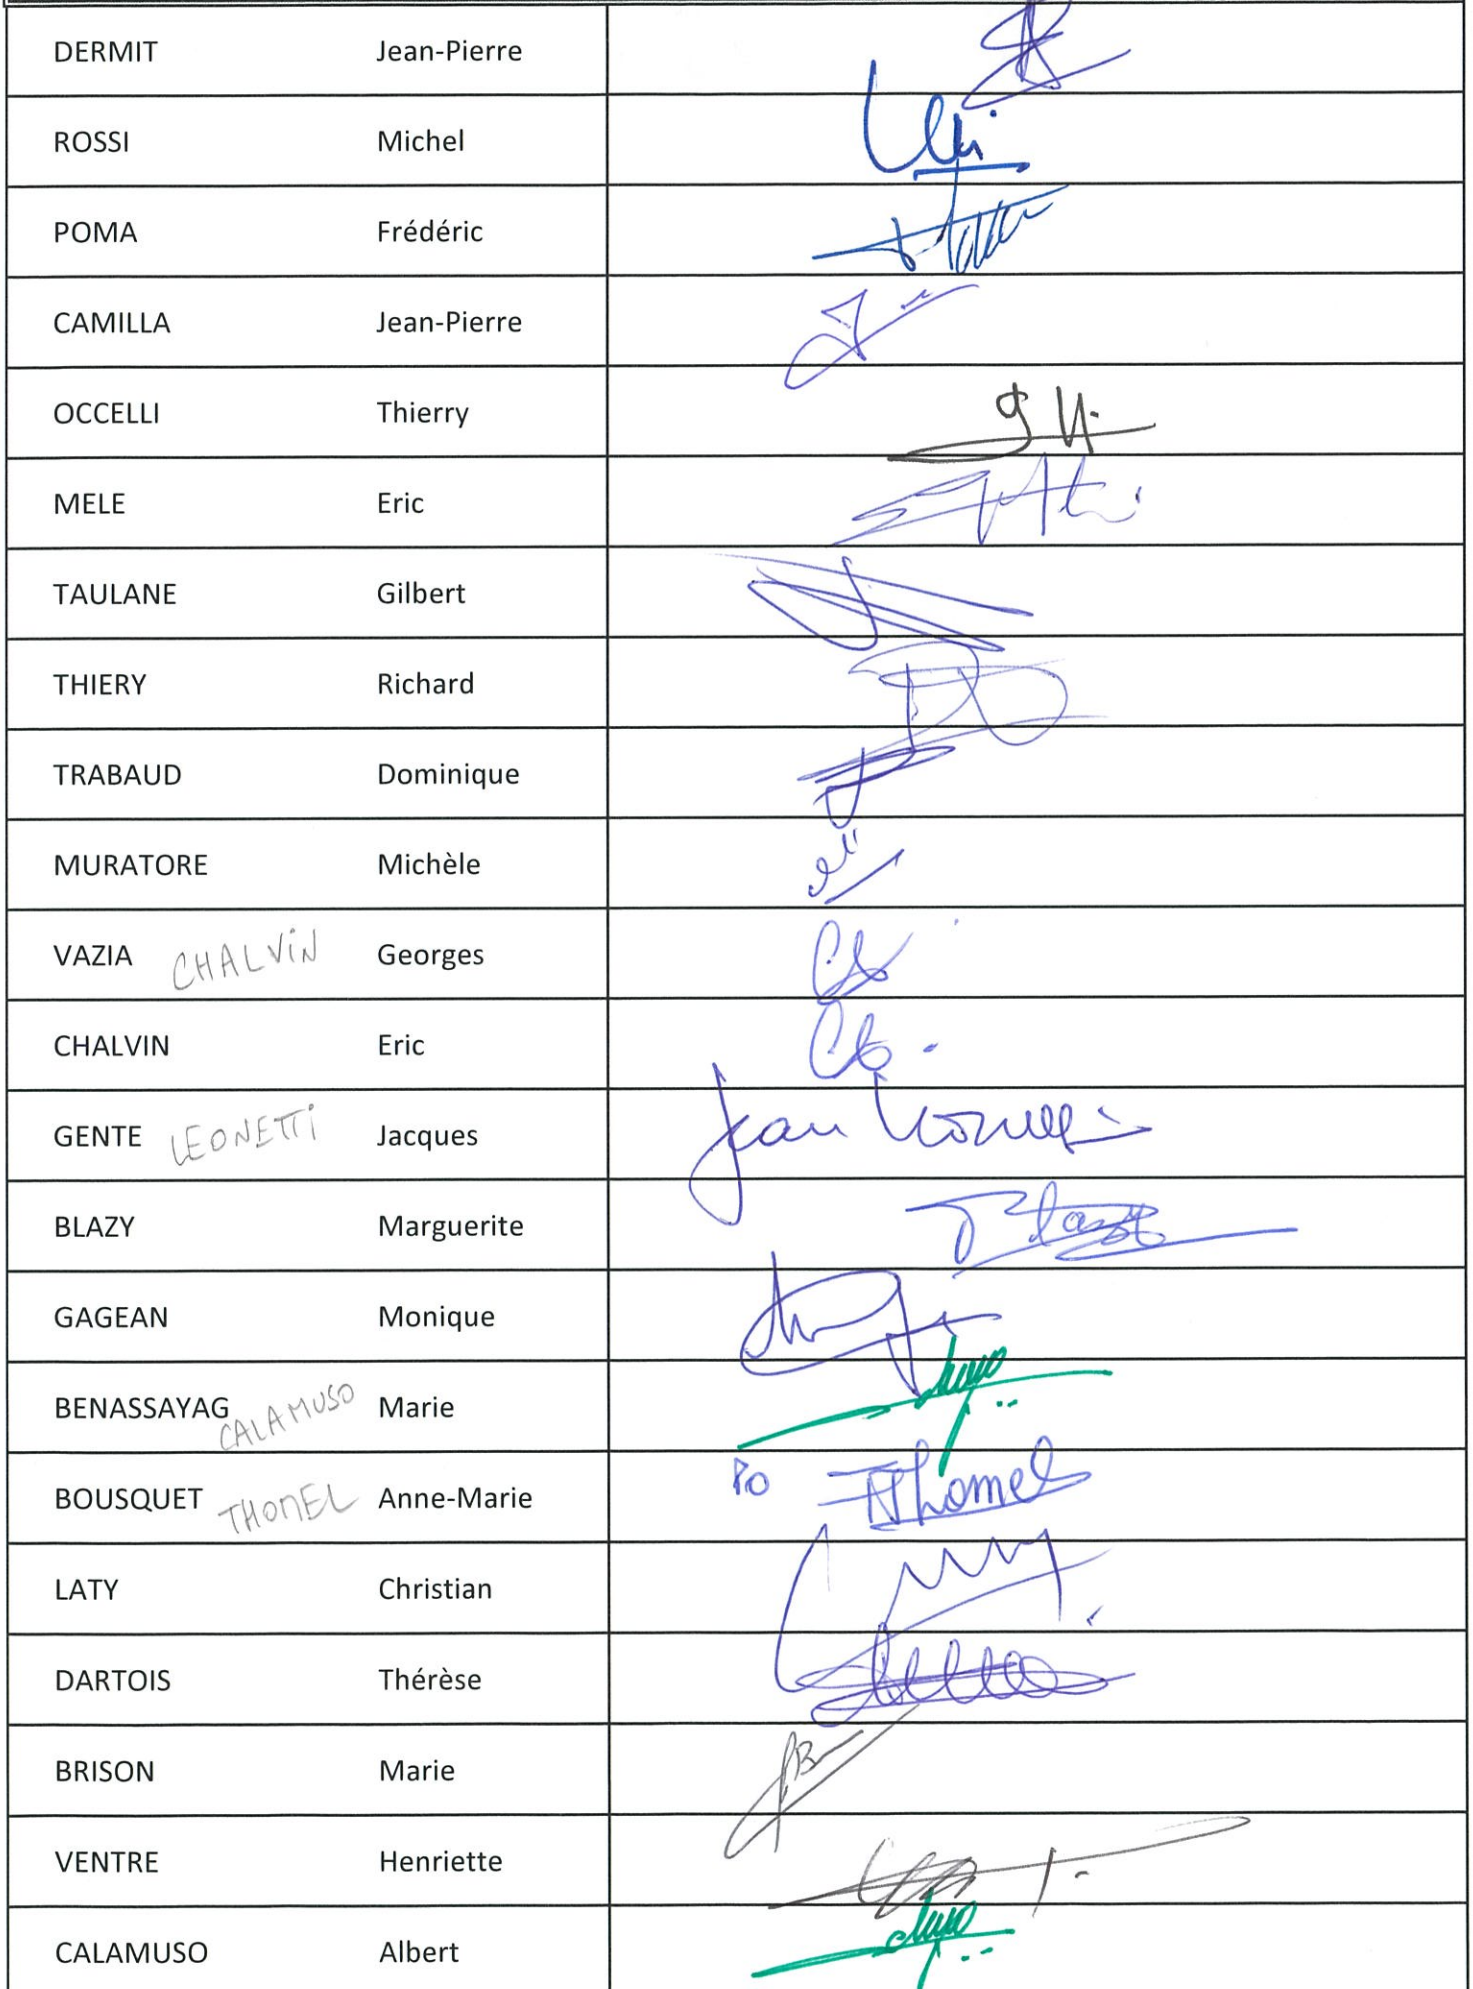 DERMIT Jean-Pierre
ROSSI Michel
POMA Frédéric
CAMILLA Jean-Pierre
OCCELLI Thierry
MELE Eric
TAULANE Gilbert
THIERY Richard
TRABAUD Dominique
MURATORE Michèle
VAZIA CHALViN Georges
CHALVIN Eric
GENTE LEONETTi Jacques Jean
BLAZY Marguerite
GAGEAN Monique
BENASSAYAG CALAMUSO Marie
BOUSQUET THOMEL Anne-Marie Po Thomel
LATY Christian
DARTOIS Thérèse
BRISON Marie
VENTRE Henriette
CALAMUSO Albert